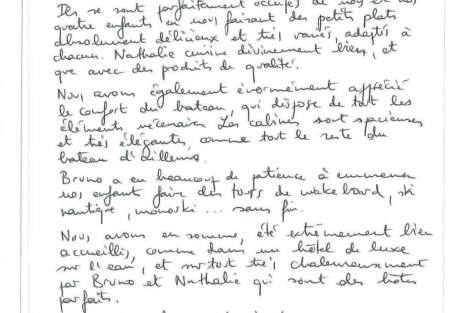 Ils se sont parfaitement occupés de nous et nos
quatre enfants en nous faisant des petits plats
absolument délicieux et très variés, adaptés à
chacun. Nathalie cuisine divinement bien, et
que avec des produits de qualité.
Nous avons également énormément apprécié
le confort du bateau, qui dispose de tout les
éléments nécessaires. Les cabines sont spacieuses
et très élégantes, comme tout le reste du
bateau d'ailleurs.
Bruno a eu beaucoup de patience à emmener
nos enfants faire des tours de wakeboard, ski
nautique, monoski ... sans fin.
Nous avons en somme, été extrêmement bien
accueillis, comme dans un hôtel de luxe
sur l'eau, et surtout très chaleureusement
par Bruno et Nathalie qui sont des hôtes
parfaits.